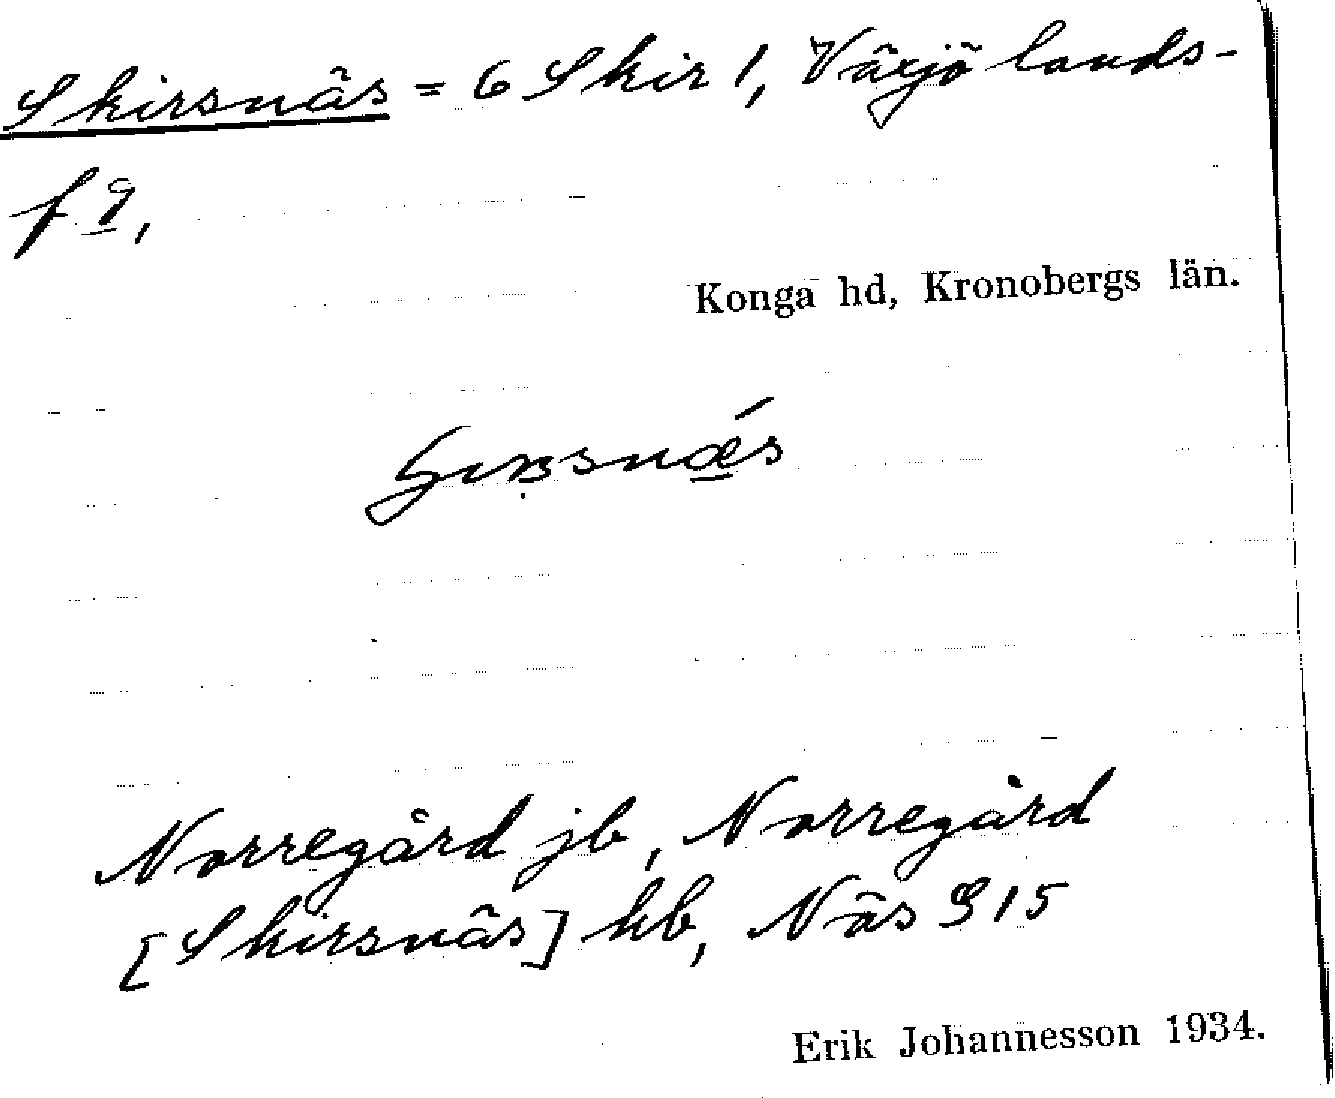 Skirsnäs = 6 Skir 1, Växjö lands-
f g,
Konga hd, Kronobergs län.
Norregård jb, Norregård
[Skirsnäs] kb, Näs S 15
Erik Johannesson 1934.